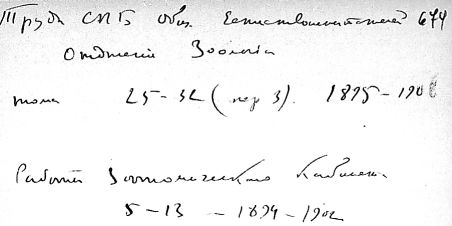 Труды СПБ Общ. Естествоиспытателей 674
Отделение Зоологии
тома 25-32 (пер 3). 1895-190
Работы Зоотомического Кабинета
5-13 - 1894-1902